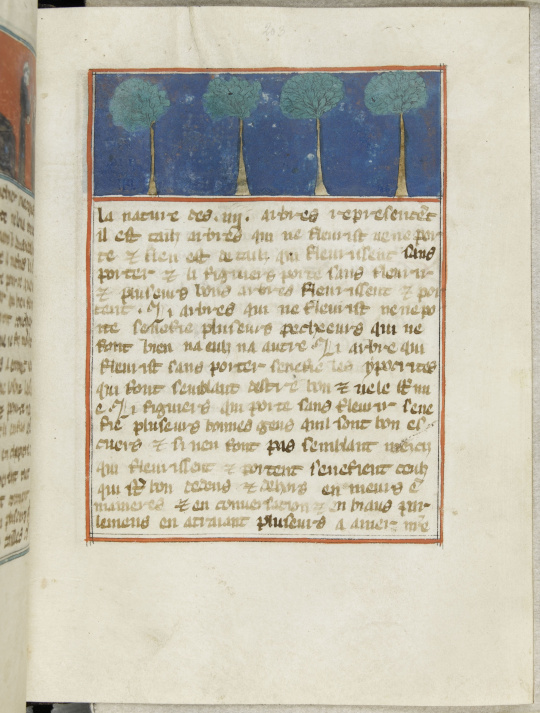 La nature des .iiij. arbres representẽt
il est tailz arbres qui ne fleurist ne ne por
te & sen est de tailz qui fleurissent sans
porter & li figuiers porte sans fleurir
& pluseurs bons arbres fleurissent & por
tent . Li arbres qui ne fleurist ne ne po
rte senefie pluseurs pecheeurs qui ne
font bien na eulz na autre . Li arbre qui
fleurist sans porter senefie les ypocrites
qui font semblant destre bon & ne le st mi
e . Li figuiers qui porte sans fleurir sene
fie pluseurs bonnes gens quil sont bon es
cuers & si nen font pas semblant
qui fleurissent & portent senefient ceulz
qui st bon dedens & dehors en meurs ẽ
manieres & en conversation & en biaus par
lemens en atraiant pluseurs a amer